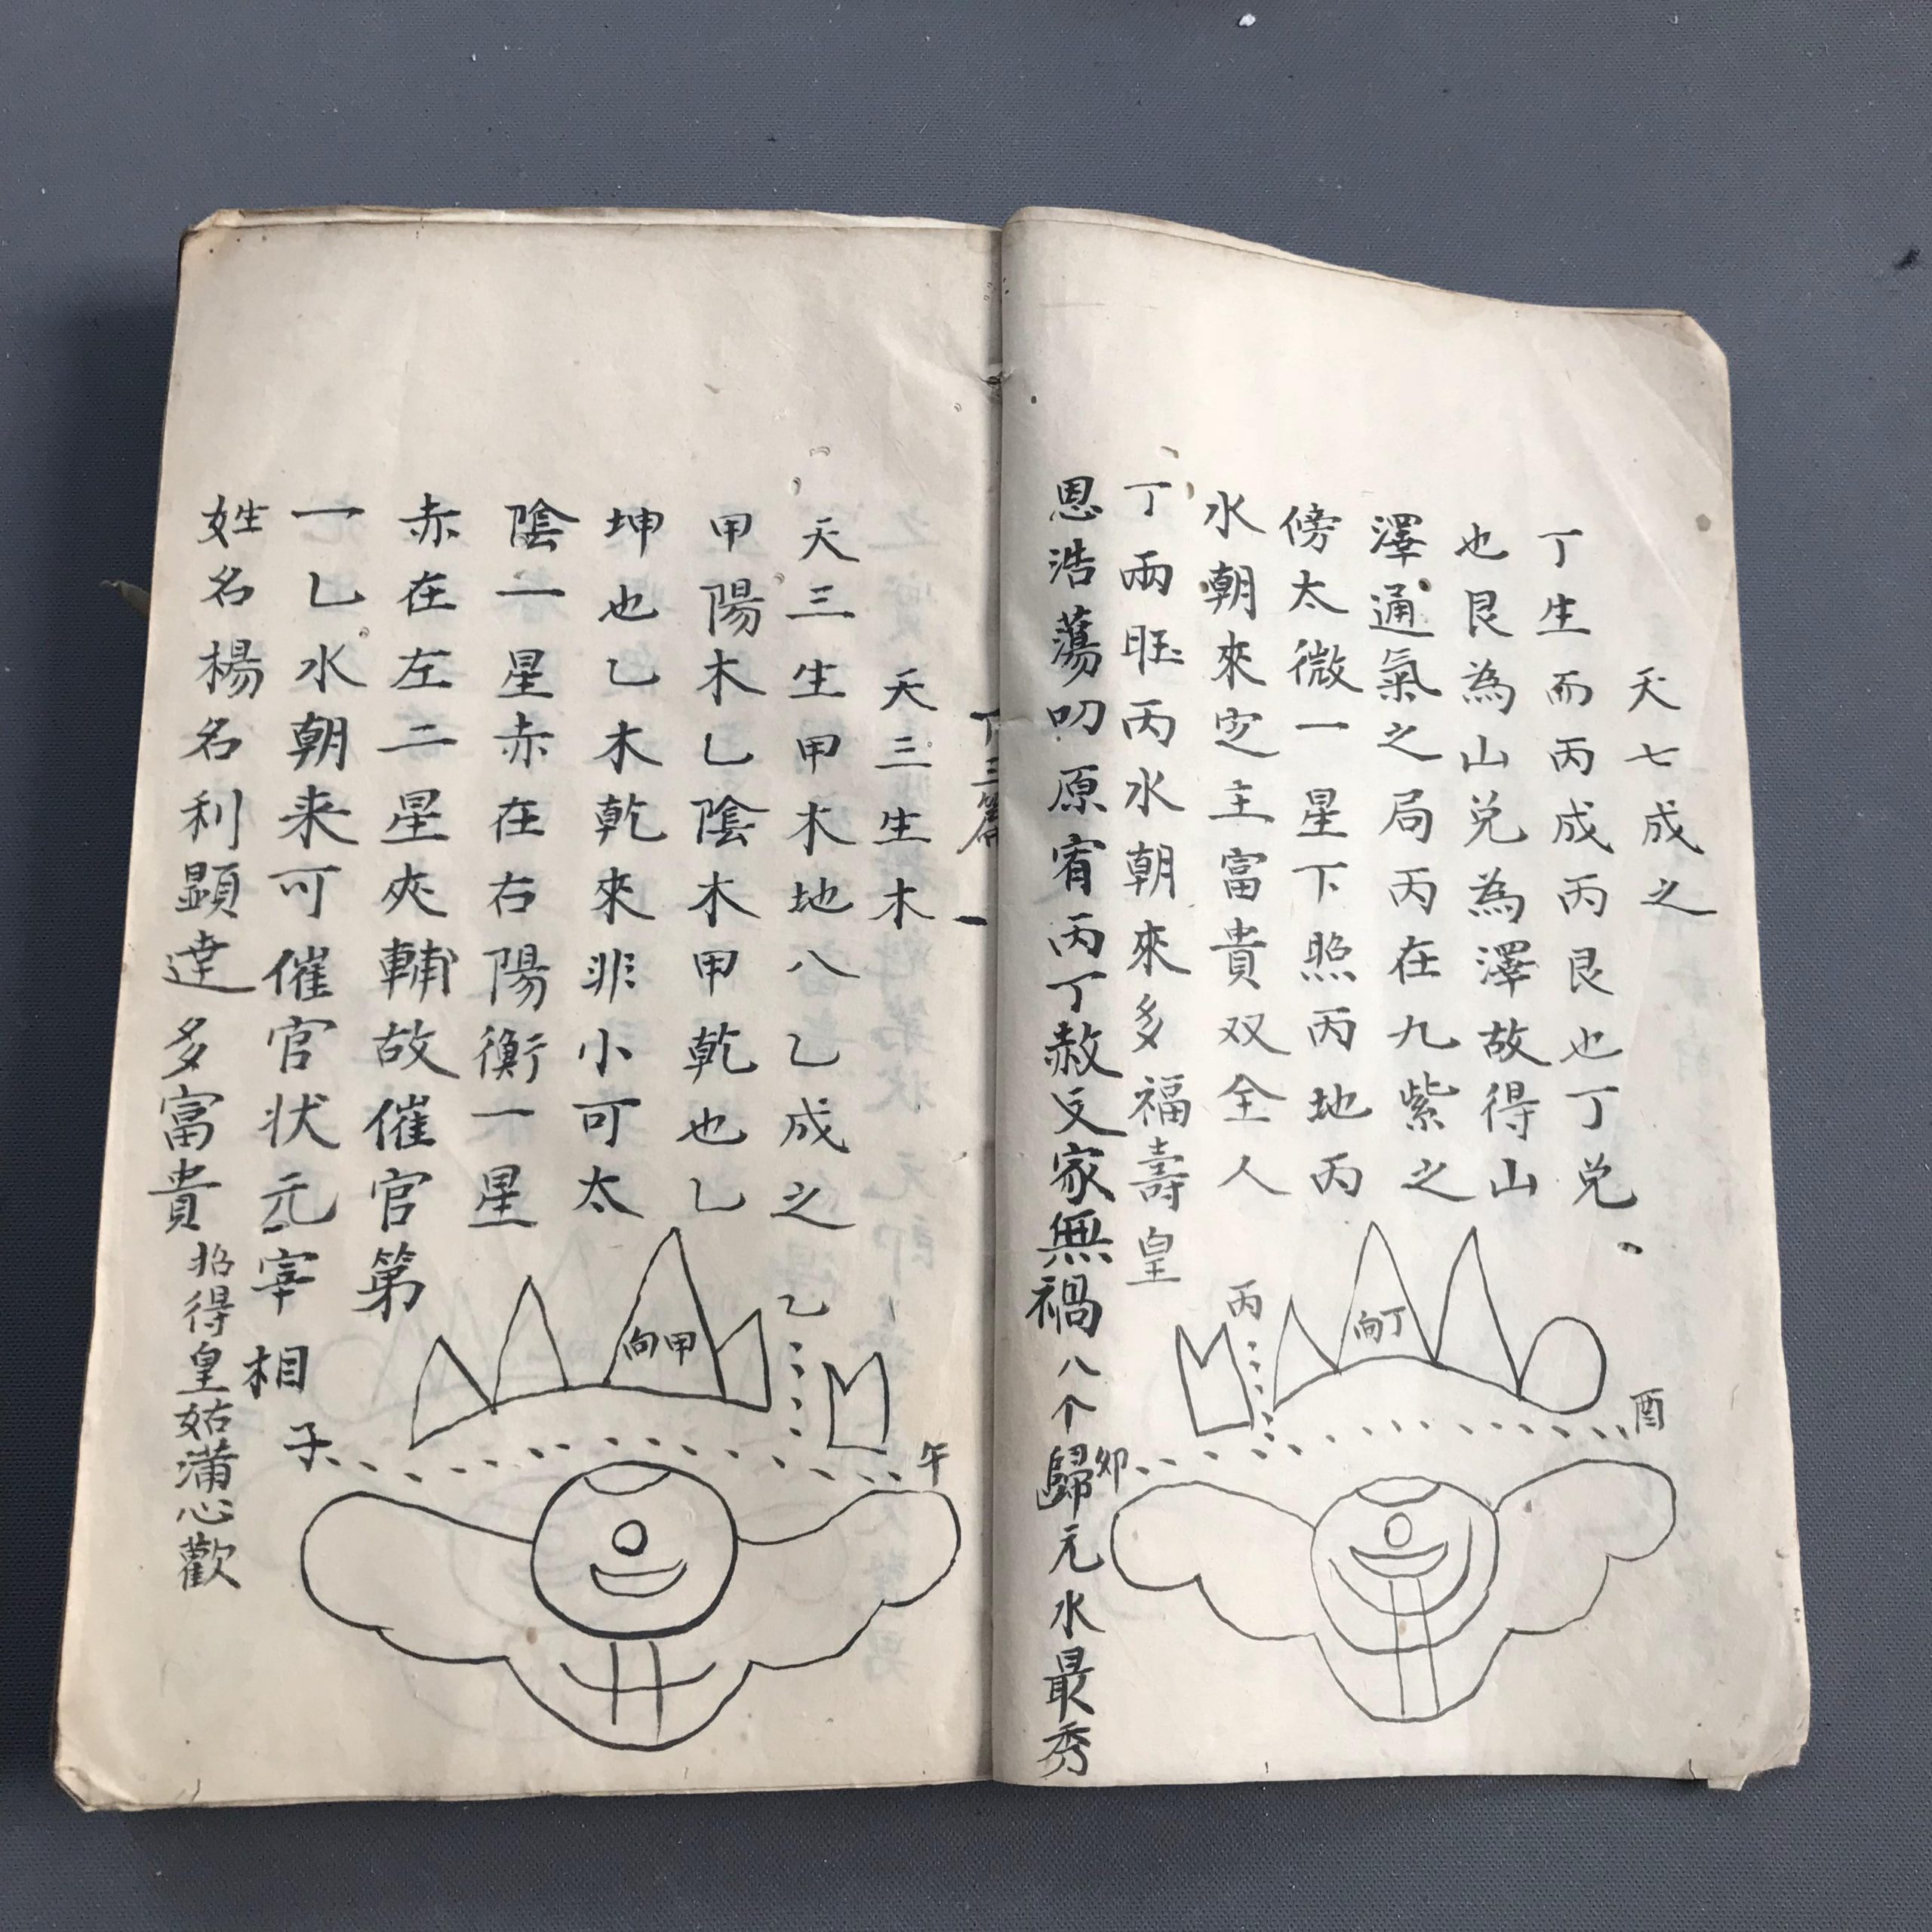 天七成之
丁生而丙成丙艮也丁兑
也艮為山兑為澤故得山
澤通氣之局丙在九紫之
傍太微一星下照丙地丙
水朝來定主富貴双全人
丁兩旺丙水朝來多福壽皇
恩浩蕩叨原宥丙丁赦文家無禍八个歸元水最秀
丙
向丁
酉
卯
下三篇
天三生木
天三生甲木地八乙成之
甲陽木乙陰木甲乾也乙
坤也乙木乾來非小可太
陰一星赤在右陽衡一星
赤在左二星夾輔故催官第
一乙水朝来可催官状元宰相
姓名楊名利顕達多富貴招得皇姑滿心歡
乙
向甲
午
子